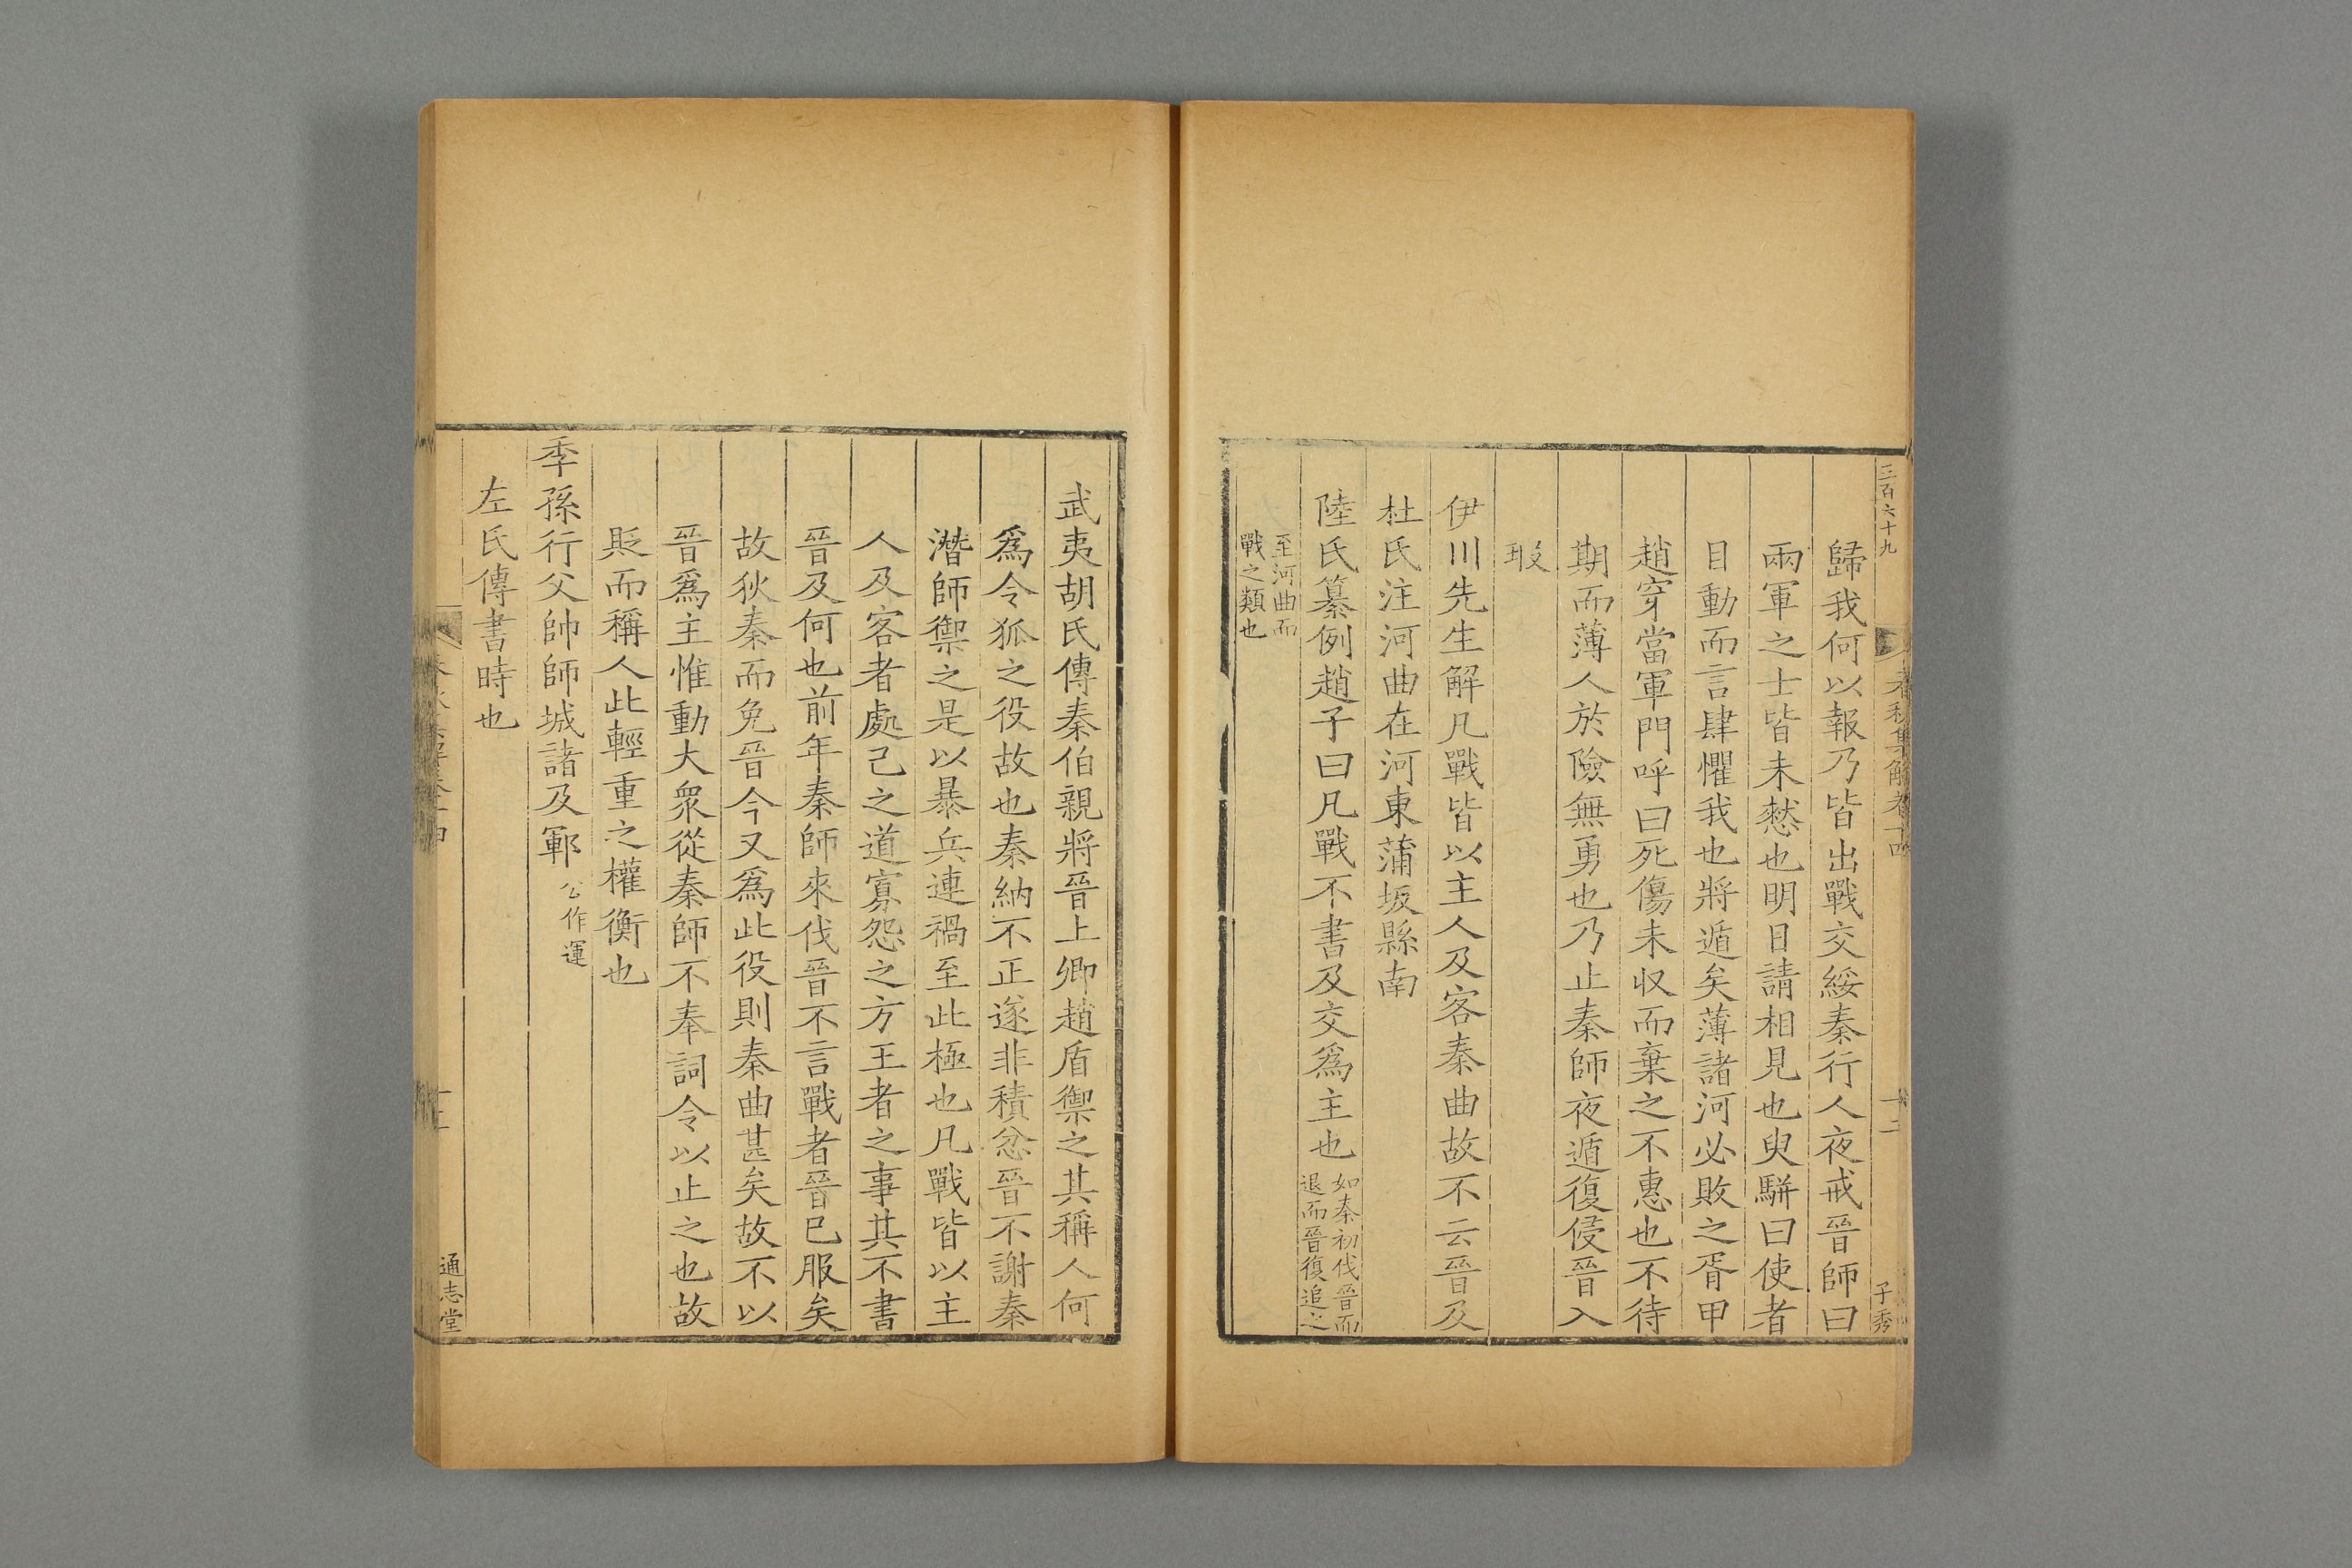 三百六十九
子秀
歸我何以報乃皆出戰交綏秦行人夜戒晉師曰
兩軍之士皆未憖也明日請相見也臾駢曰使者
目動而言肆懼我也將遁矣薄諸河必敗之胥甲
趙穿當軍門呼曰死傷未収而棄之不惠也不待
期而薄人於險無勇也乃止秦師夜遁復侵晉入
瑕
伊川先生解凡戰皆以主人及客秦曲故不云晉及
杜氏注河曲在河東蒲坂縣南
陸氏纂例趙子曰凡戰不書及交爲主也如秦初伐晉而
退而晉復追之
至河曲而
戰之類也
武夷胡氏傳秦伯親將晉上卿趙盾禦之其稱人何
爲令狐之役故也秦納不正遂非積忿晉不謝秦
潛師禦之是以暴兵連禍至此極也凡戰皆以主
人及客者處己之道寡怨之方王者之事其不書
晉及何也前年秦師來伐晉不言戰者晉已服矣
故狄秦而免晉今又爲此役則秦曲甚矣故不以
晉爲主惟動大衆從秦師不奉詞令以止之也故
貶而稱人此輕重之權衡也
季孫行父帥師城諸及鄆公作運
左氏傳書時也
通志堂